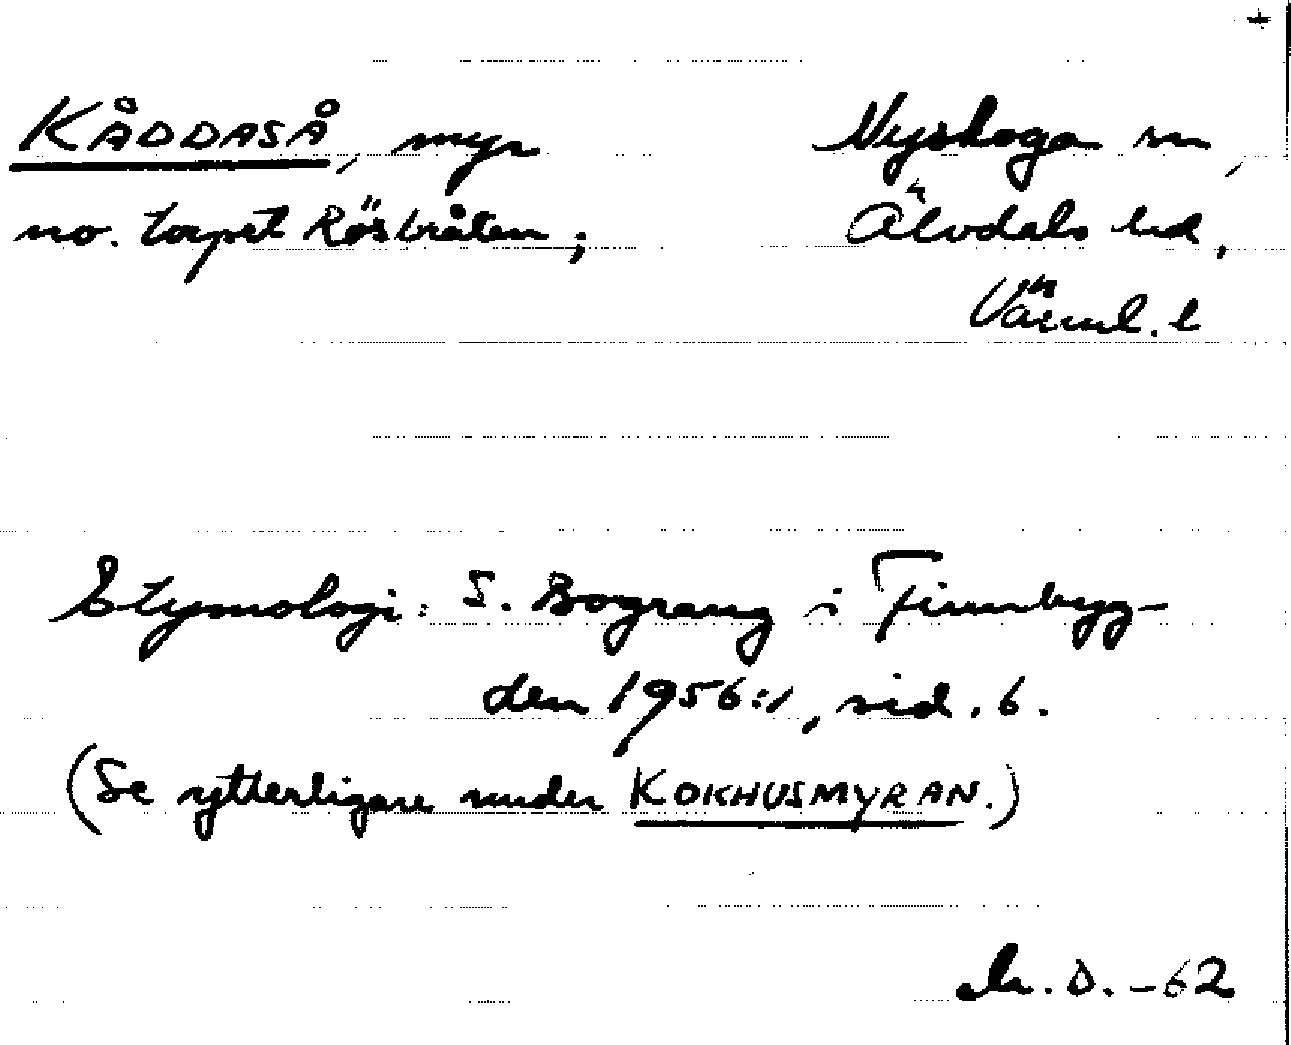 +
KÅDDASÅ, myr Nyskoga sn,
no. torpet Rösbråten; Älvdals hd,
Värml. l
Etymologi: S. Bograng i Finnbygg-
den 1956:1, sid. 6.
(Se ytterligare under KOKHUSMYRAN.)
D. -62